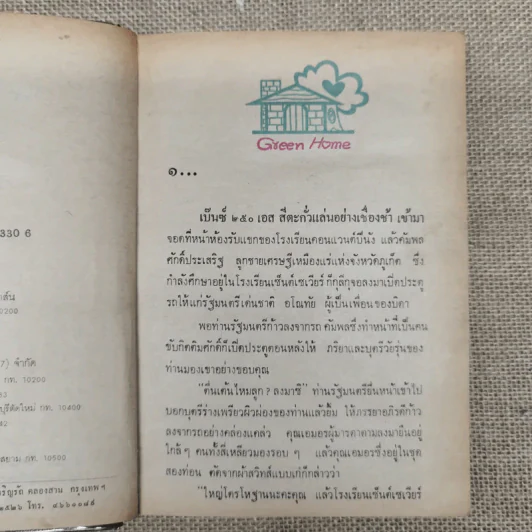 330 6
๗) จำกัด
กท. 10200
บุรีตัดใหม่ กท. 10400
สยาม กท. 10500
เจริญรัถ คลองสาน กรุงเทพฯ
๒๕๒๖ โทร. ๔๖๖๐๐๘๕
Green Home
๑...
เบ๊นซ์ ๒๕๐ เอส สีตะกั่วแล่นอย่างเชื่องช้า เข้ามา
จอดที่หน้าห้องรับแขกของโรงเรียนคอนแวนต์ปีนัง แล้วคัมพล
ศักดิ์ประเสริฐ ลูกชายเศรษฐีเหมืองแร่แห่งจังหวัดภูเก็ต ซึ่ง
กำลังศึกษาอยู่ในโรงเรียนเซ็นต์เซเวียร์ ก็กุลีกุจอลงมาเปิดประตู
รถให้แก่รัฐมนตรีเด่นชาติ อโณทัย ผู้เป็นเพื่อนของบิดา
พอท่านรัฐมนตรีก้าวลงจากรถ คัมพลซึ่งทำหน้าที่เป็นคน
ขับกิตติมศักดิ์ก็เปิดประตูตอนหลังให้ ภริยาและบุตรีวัยรุ่นของ
ท่านมองเขาอย่างขอบคุณ
"ตื่นเต้นไหมลูก ? ลงมาซี" ท่านรัฐมนตรียื่นหน้าเข้าไป
บอกบุตรีร่างเพรียวผิวผ่องของท่านแล้วยิ้ม ให้ภรรยาอภิรดีก้าว
ลงจากรถอย่างคล่องแคล่ว คุณเอมอรผู้มารดาตามลงมายืนอยู่
ใกล้ๆ คนทั้งสี่เหลียวมองรอบๆ แล้วคุณเอมอรซึ่งอยู่ในชุด
สองท่อน ตัดจากผ้าสวิทส์แบบเก๋ก็กล่าวว่า
"ใหญ่โตรโหฐานนะคะคุณ แล้วโรงเรียนเซ็นต์เซเวียร์